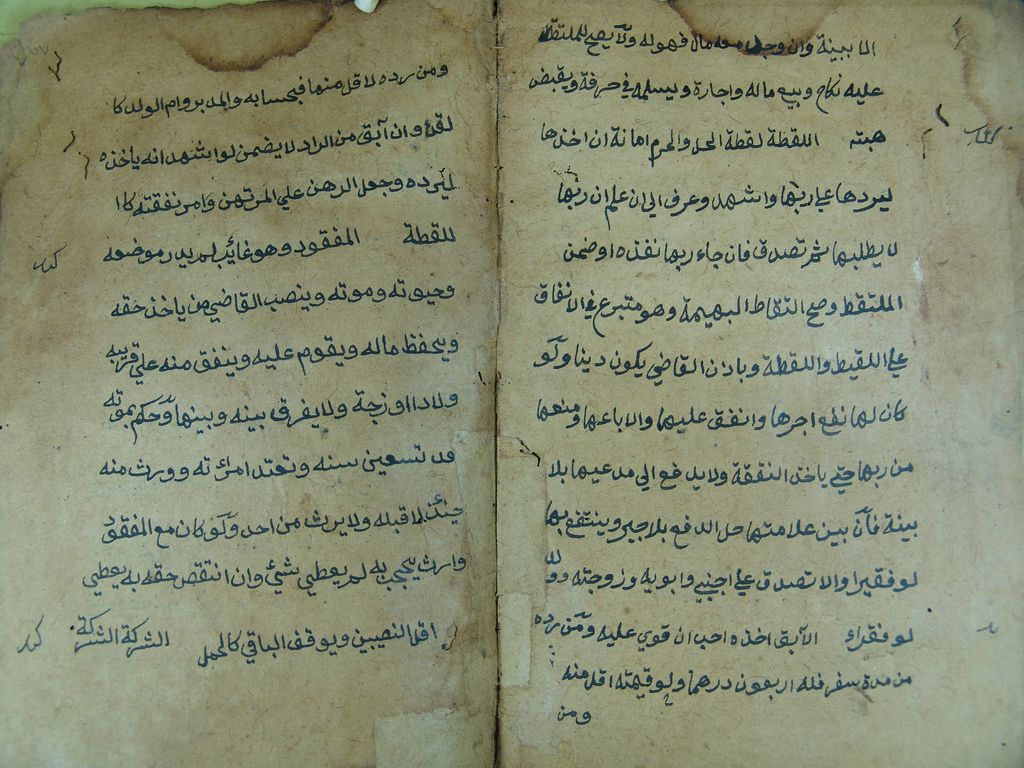 الا ببينة وان وجد معه مال فهو له ولا يصح للملتقط
عليه نكاح وبيع ماله واجارة ويسلمه في حرفة ويقبض
هبته اللقطة لقطة الحل والحرم امانة ان اخذها
ليردها على ربها واشهد وعرف الى ان علم ان ربها
لا يطلبها ثم تصدق فان جاء ربها نفذه او ضمن
الملتقط وصح التقاط البهيمة وهو متبرع في الانفاق
على اللقيط واللقطة وباذن القاضي يكون دينا ولو
كان لها نفع اجرها وانفق عليها والا باعها ومنعها
من ربها حتى ياخذ النفقة ولا يدفع الى مدعيها بلا
بينة فان بين علامتها حل الدفع بلا جبر وينتفع بها
لو فقيرا والا تصدق على اجنبي وابويه وزوجته وولد
لو فقراء الآبق اخذه احب ان قوي عليه ومن رده
من مدة سفر فله اربعون درهما ولو قيمته اقل منه
ومن
ومن رده لاقل منها فبحسابه والمدبر وام الولد كا
لقن وان آبق من الراد لا يضمن لو اشهد انه ياخذه
ليرده وجعل الرهن علي المرتهن وامر نفقته كا
للقطة المفقود وهو غائب لم يدر موضعه
وحيوته وموته وينصب القاضي من ياخذ حقه
ويحفظ ماله ويقوم عليه وينفق منه على قريبه
ولادا او زوجة ولا يفرق بينه وبينها وحكم بموته
بعد تسعين سنه وتعتد امراته وورث منه
حينئذ لا قبله ولا يرث من احد ولو كان مع المفقود
وارث يحجب به لم يعطي شئي وان انتقص حقه به يعطي
اقل النصيبين ويوقف الباقي كالحمل الشركة الشركة